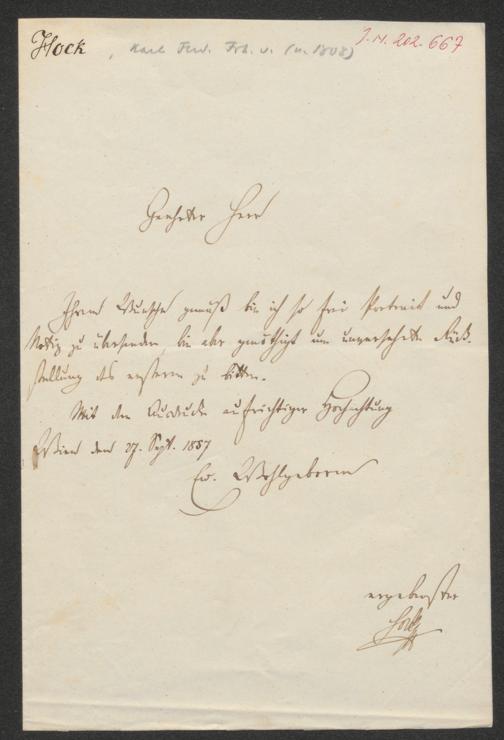 Hock, Karl Ferd. Frh. v. (n. 1808)
J.N. 202.667
Geehrter Herr
Ihrem Wunsche gemäß bin ich so frei Portrait und
Notiz zu übersenden bin aber genöthigt um unversehrte Rück-
stellung des ersteren zu bitten.
Mit dem Ausdrucke aufrichtiger Hochachtung
Wien den 27. Sept. 1857
Ew. Wohlgeboren
ergebenster
Hock